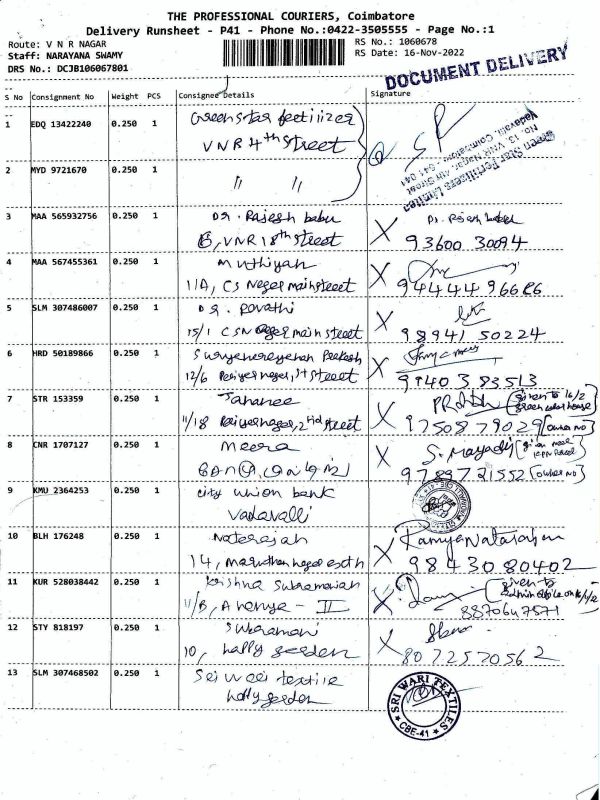 THE PROFESSIONAL COURIERS, Coimbatore
Delivery Runsheet - P41 - Phone No.:0422-3505555 - Page No.:1
Route: V N R NAGAR
RS No.: 1060678
Staff: NARAYANA SWAMY
RS Date: 16-Nov-2022
DRS No.: DCJB106067801
DOCUMENT DELIVERY
S No Consignment No Weight PCS Consignee Details Signature
1 EDQ 13422240 0.250 1 Greenstar fertilizer
VNR 4th street
Green Star Fertilizers Limited
No. 13, VNR Nagar, 4th Street
Vadavalli, Coimbatore - 641 041
2 MYD 9721670 0.250 1 " "
3 MAA 565932756 0.250 1 Dr. Rajesh babu
B, VNR 18th street X 93600 30094
4 MAA 567455361 0.250 1 Muthiyah
11A, CS Nagar main street X 94444 96686
5 SLM 307486007 0.250 1 Dr. Revathi
15/1 CSN nagar main street X 98941 50224
6 HRD 50189866 0.250 1 Suryanarayanan
12/6 Periyar nagar, 1st street X 99403 83513
7 STR 153359 0.250 1 Jahanee given to 16/2
11/18 Periyar nagar, 2nd street X 97508 79029 (owner no)
8 CNR 1707127 0.250 1 Meera S. Mayadi
X 9789721552 (owner no)
9 KMU 2364253 0.250 1 city union bank
Vadavalli
10 BLH 176248 0.250 1 Natarajan Ramya Natarajan
14, Maruthan nagar X 98430 80402
11 KUR 528038442 0.250 1 Krishna Subramanian given to
11/B, Ananya - II X 8870647571
12 STY 818197 0.250 1 Sukramani
10, holly garden X 8072570562
13 SLM 307468502 0.250 1 Sri wari textile
holly garden
SRI WARI TEXTILES
CBE-41